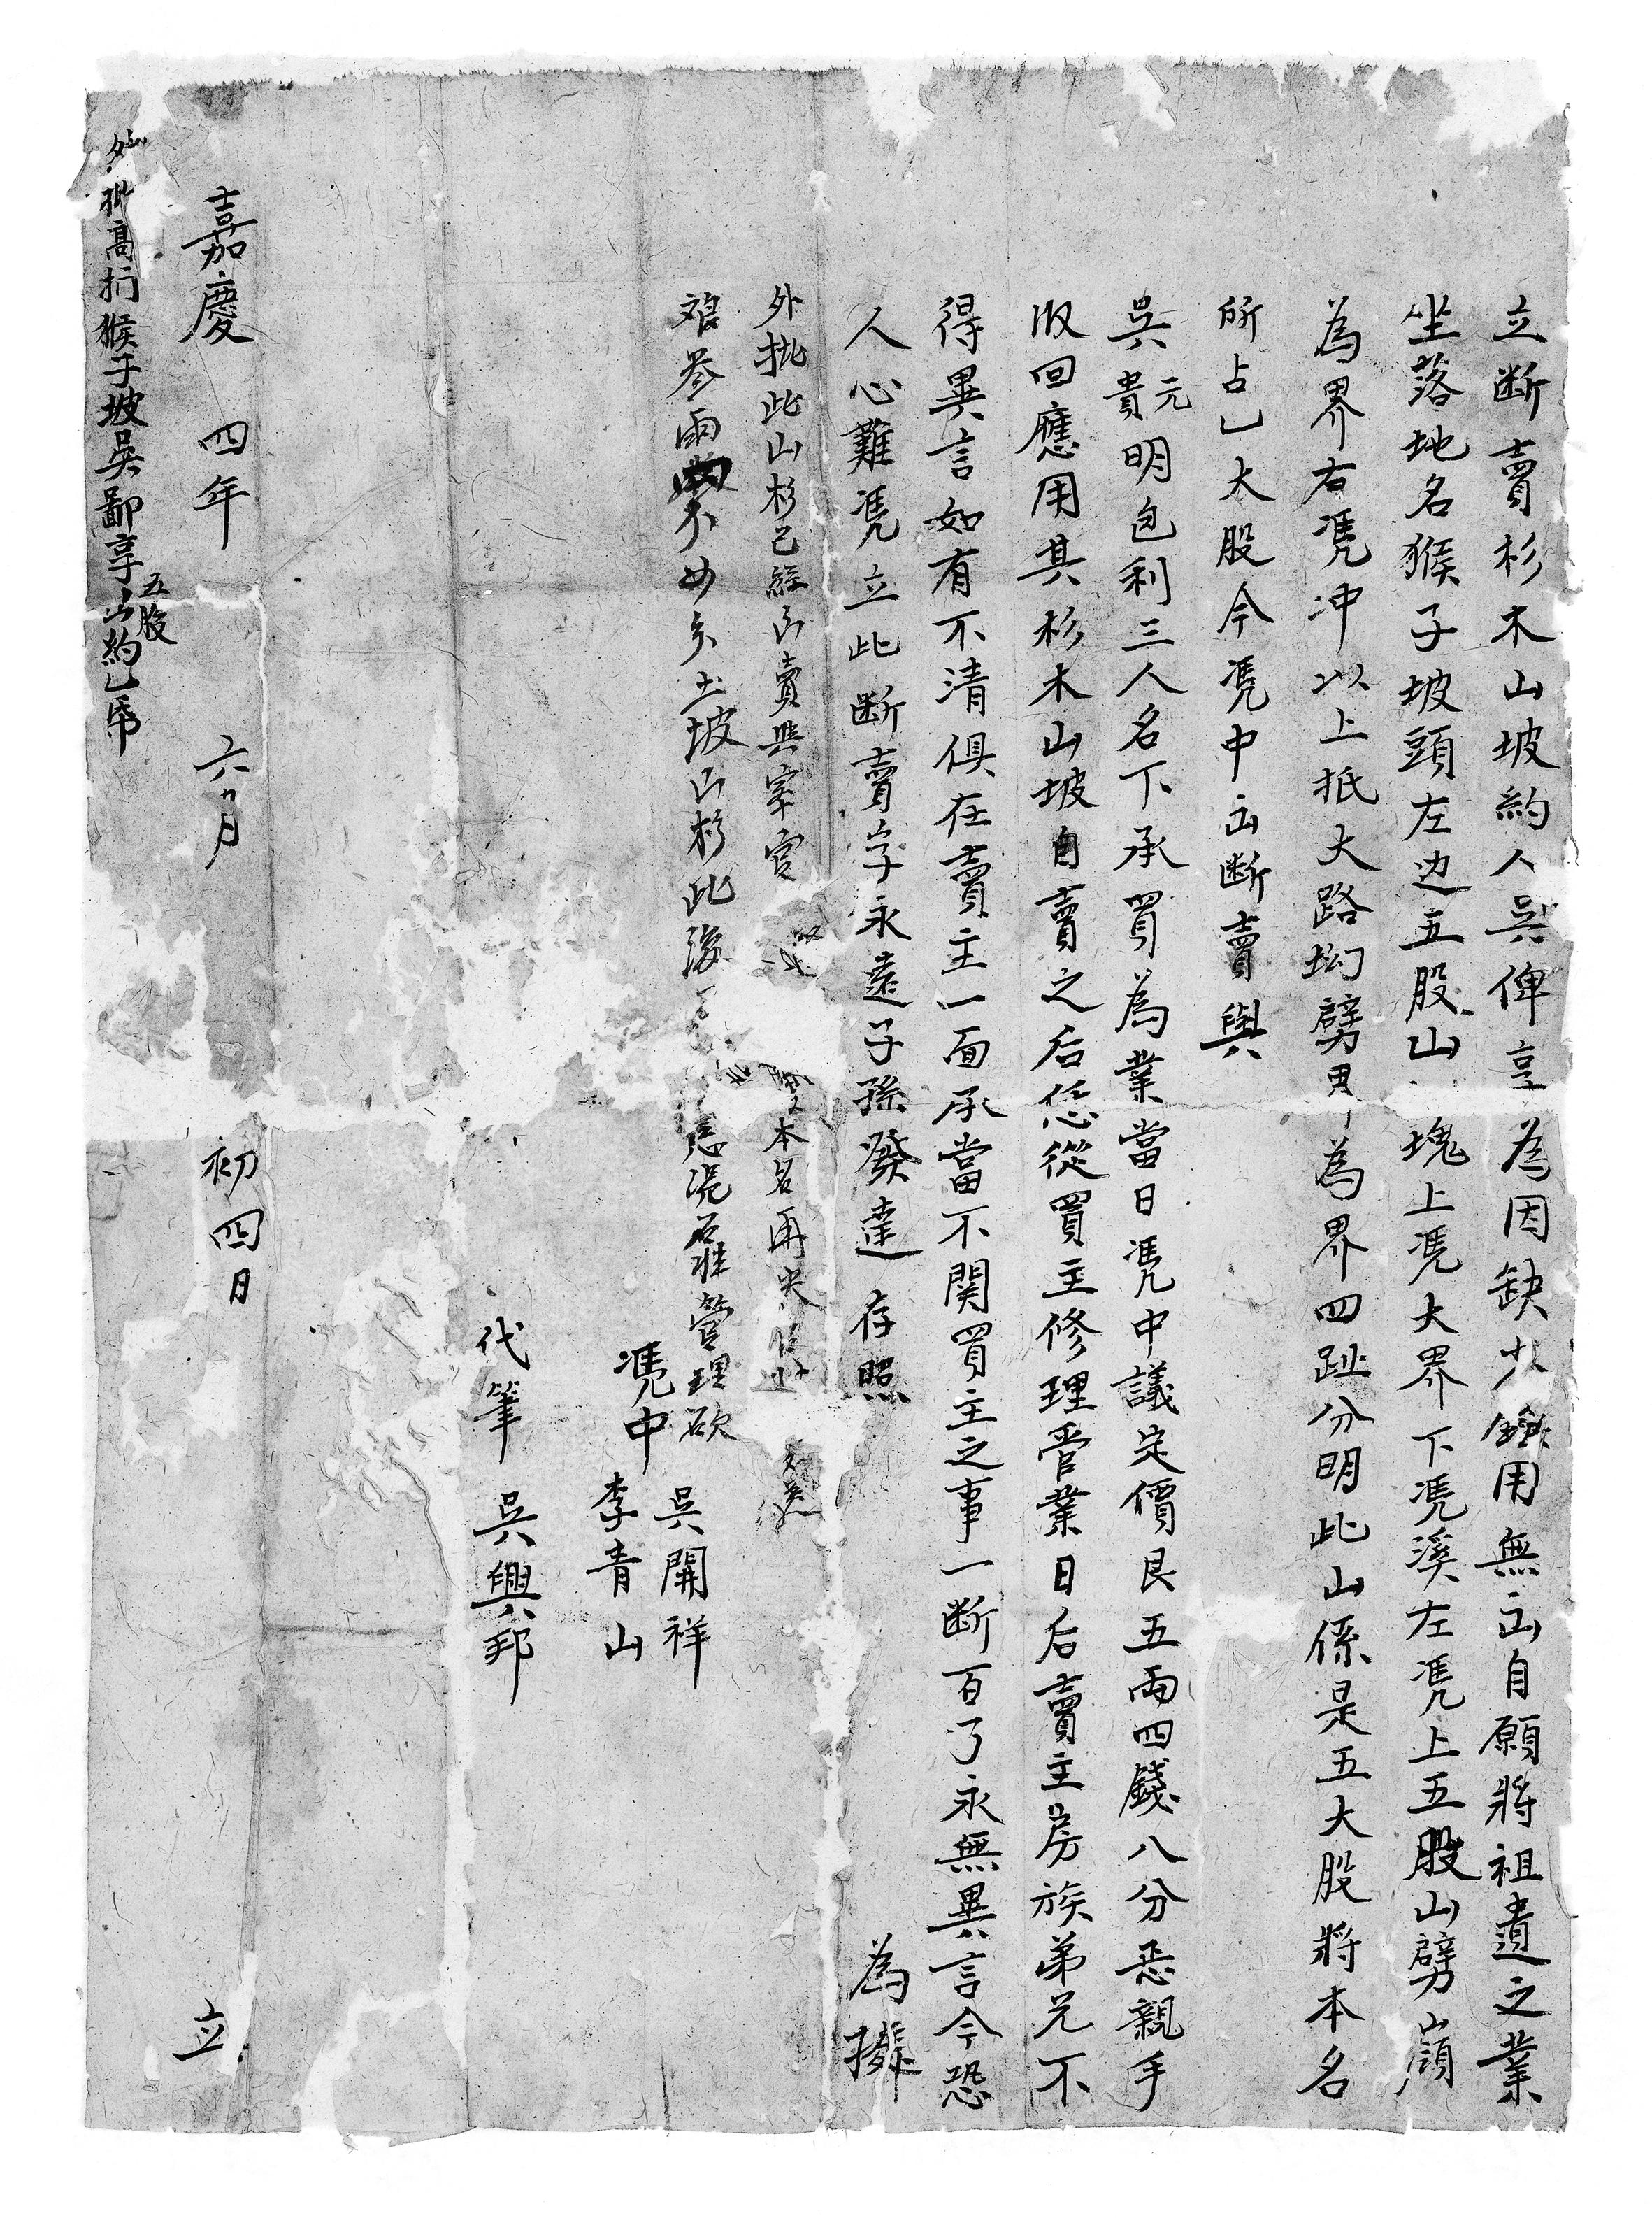 立断賣杉木山坡約人吳俾享為因缺少錢用無出自願將祖遺之業
坐落地名猴子坡頭左边五股山塊上凴大界下凴溪左凴上五股山劈嶺
為界右凴冲以上抵大路坳劈界為界四趾分明此山係是五大股將本名
所占乚大股今凴中出断賣與
吳元貴明包利三人名下承買為業當日凴中議定價艮五兩四錢八分恶親手
收回應用其杉木山坡自賣之后恁從買主修理管業日后賣主房族弟兄不
得異言如有不清俱在賣主一面承當不関買主之事一断百了永無異言今恐
人心難凴立此断賣字永遠子孫發達存照 為據
外批此山杉已經出賣與宰官 本名再央
叁兩 土坡山杉此後 凴 管理砍
凴中 吳開祥
李青山
代筆 吳興邦
嘉慶四年六月初四日 立
外批高 猴子坡吳鄙享五股山約乚吊